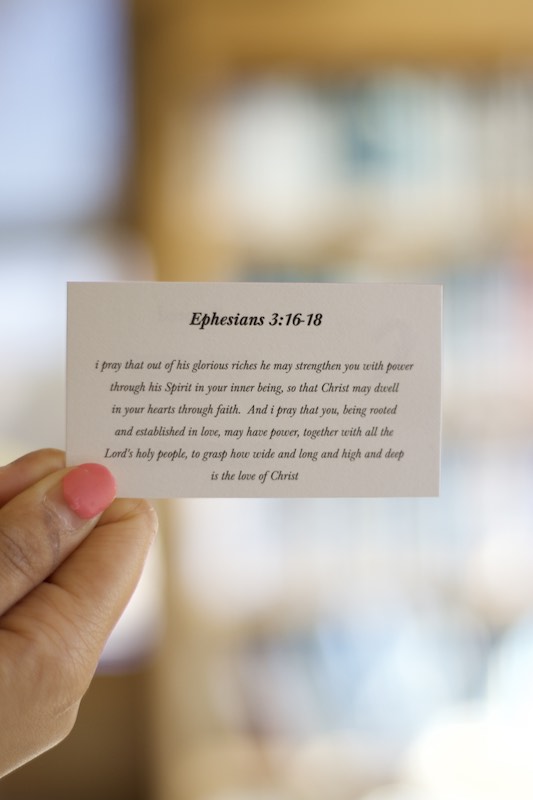 Ephesians 3:16-18
i pray that out of his glorious riches he may strengthen you with power
through his Spirit in your inner being, so that Christ may dwell
in your hearts through faith. And i pray that you, being rooted
and established in love, may have power, together with all the
Lord's holy people, to grasp how wide and long and high and deep
is the love of Christ